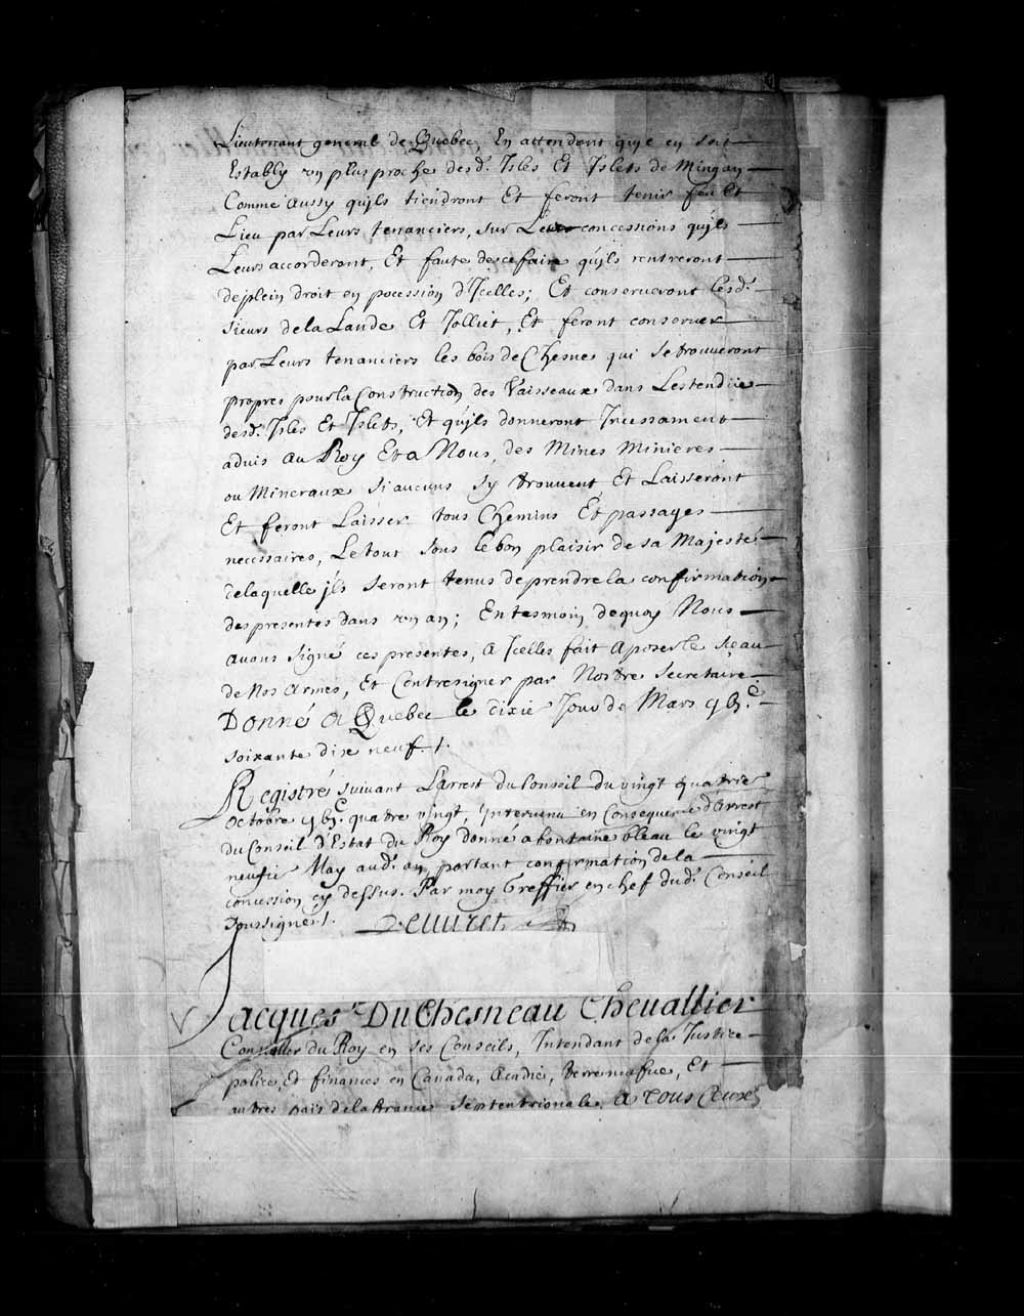 Lieutenant general de Quebec, En attendant qu'jl en soit
Estably vn plus proche desd. Isles Et Islets de Mingan
Comme aussy qu'jls tiendront Et feront tenir feu Et
Lieu par Leurs tenanciers, sur Les concessions qu'jls
Leurs accorderont, Et faute de ce faire qu'jls rentreront
de plein droit en pocession d'Jcelles; Et conserueront lesd.
sieurs de la Lande Et Jolliet, Et feront conseruer
par Leurs tenanciers les bois de Chesnes qui se trouueront
propres pour la Construction des Vaisseaux dans Lestendüe
desd. Isles Et Islets, Et qu'jls donneront Jncessament
aduis au Roy Et a Nous, des Mines Minieres
ou Mineraux si aucuns sy trouuent Et Laisseront
Et feront Laisser tous Chemins Et passages
necessaires, Le tout sous le bon plaisir de sa Majesté
de laquelle jls seront tenus de prendre la confirmation
des presentes dans vn an; En tesmoin de quoy Nous
auons signé ces presentes, a Jcelles fait aposer le sceau
de Nos armes, Et Contresigner par Nostre Secretaire
Donné a Quebec le dixie Jour de Mars gbjc
soixante dix neuf ./.
Registré suiuant L'arrest du Conseil du vingt quatrie
octobre gbjc quatre vingt, Jnteruenu en Consequence d'arrest
du Conseil d'Estat du Roy donné a fontainebleau le vingt
neufie May aud. an, portant confirmation de la
concession cy dessus. Par moy Greffier en chef dud. Conseil
soussigné ./. Peuuret
Jacques DuChesneau Cheuallier
Conseiller du Roy en ses Conseils, Intendant de la Justice
police, Et finances en Canada, Acadie, terreneufue, Et
autres païs de la france septentrionale, A tous Ceux